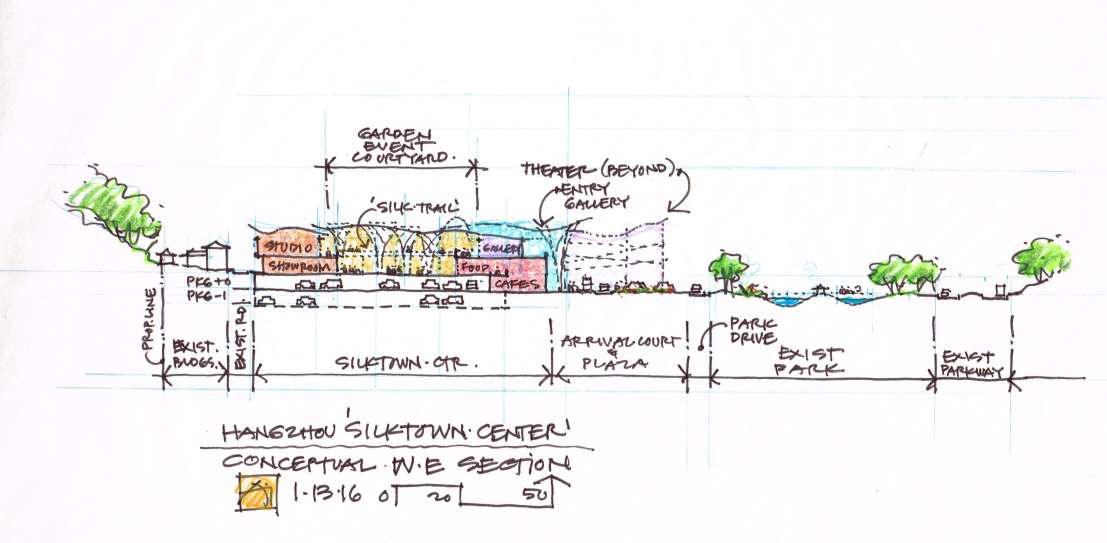 GARDEN
EVENT
COURTYARD.
THEATER (BEYOND)
ENTRY
GALLERY
'SILK·TRAIL'
STUDIO
GALLERY
SHOWROOM
FOOD
CAFES
PKG+0
PKG-1
PROP. LINE
EXIST.
BLDGS.
EXIST. RD
SILKTOWN·CTR.
ARRIVAL COURT
&
PLAZA
PARK
DRIVE
EXIST
PARK
EXIST
PARKWAY
HANGZHOU 'SILKTOWN·CENTER'
CONCEPTUAL·W·E SECTION
1·13·16 0 20 50